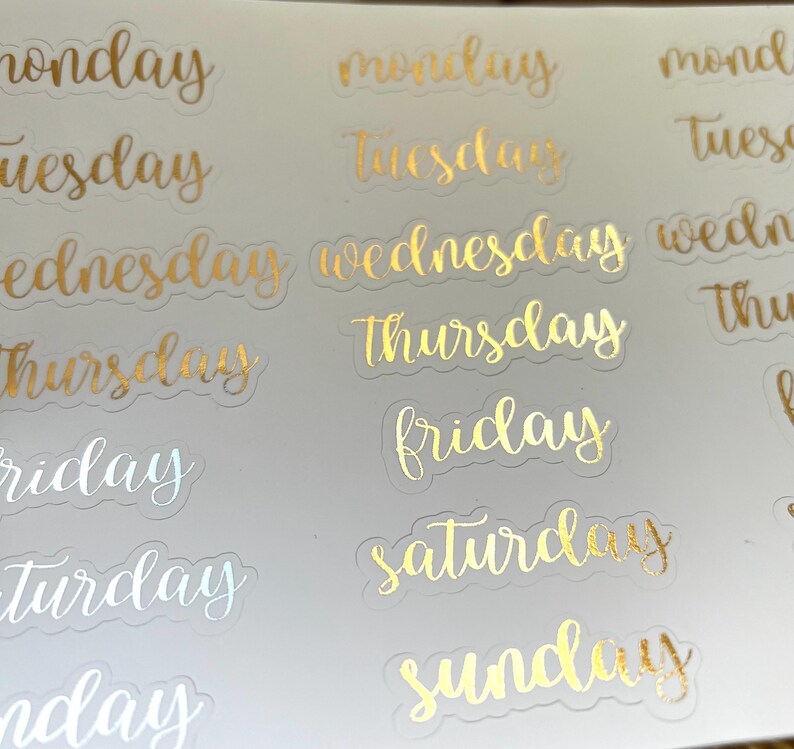 monday monday mond
tuesday tuesday tues
wednesday wednesday wedn
thursday thursday thu
friday friday f
aturday saturday
nday sunday